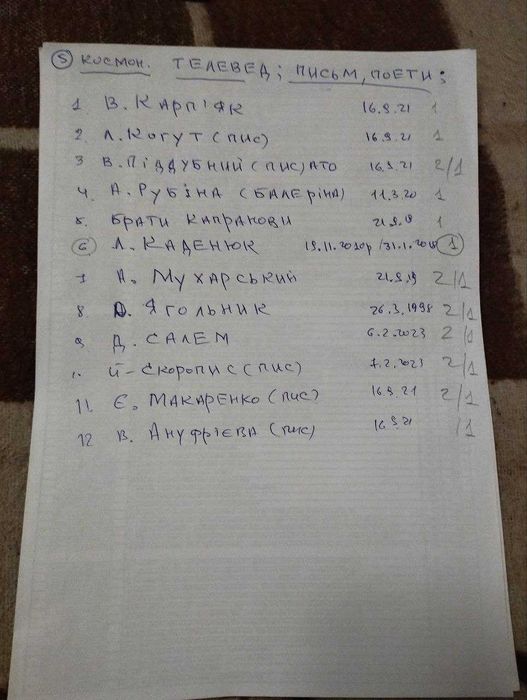 5 КОСМОН. ТЕЛЕВЕД; ПИСЬМ, ПОЕТИ:
1. В. КАРП'ЯК 16.9.21 1
2. Л. КОГУТ (ПИС) 16.9.21 1
3 В. ПІДДУБНИЙ (ПИС) АТО 16.9.21 2/1
4. А. РУБІНА (БАЛЕРІНА) 11.3.20 1
5. БРАТИ КАПРАНОВИ 21.9.19 1
6 Л. КАДЕНЮК 19.11.2010р /31.1.2018 1
7 А. МУХАРСЬКИЙ 21.9.19 2/1
8. О. ЯГОЛЬНИК 26.3.1998 2/1
9. Д. САЛЕМ 6.2.2023 2/1
Й-СКОРОПИС (ПИС) 7.2.2023 2/1
11. Є. МАКАРЕНКО (ПИС) 16.9.21 2/1
12 В. АНУФРІЄВА (ПИС) 16.9.21 /1